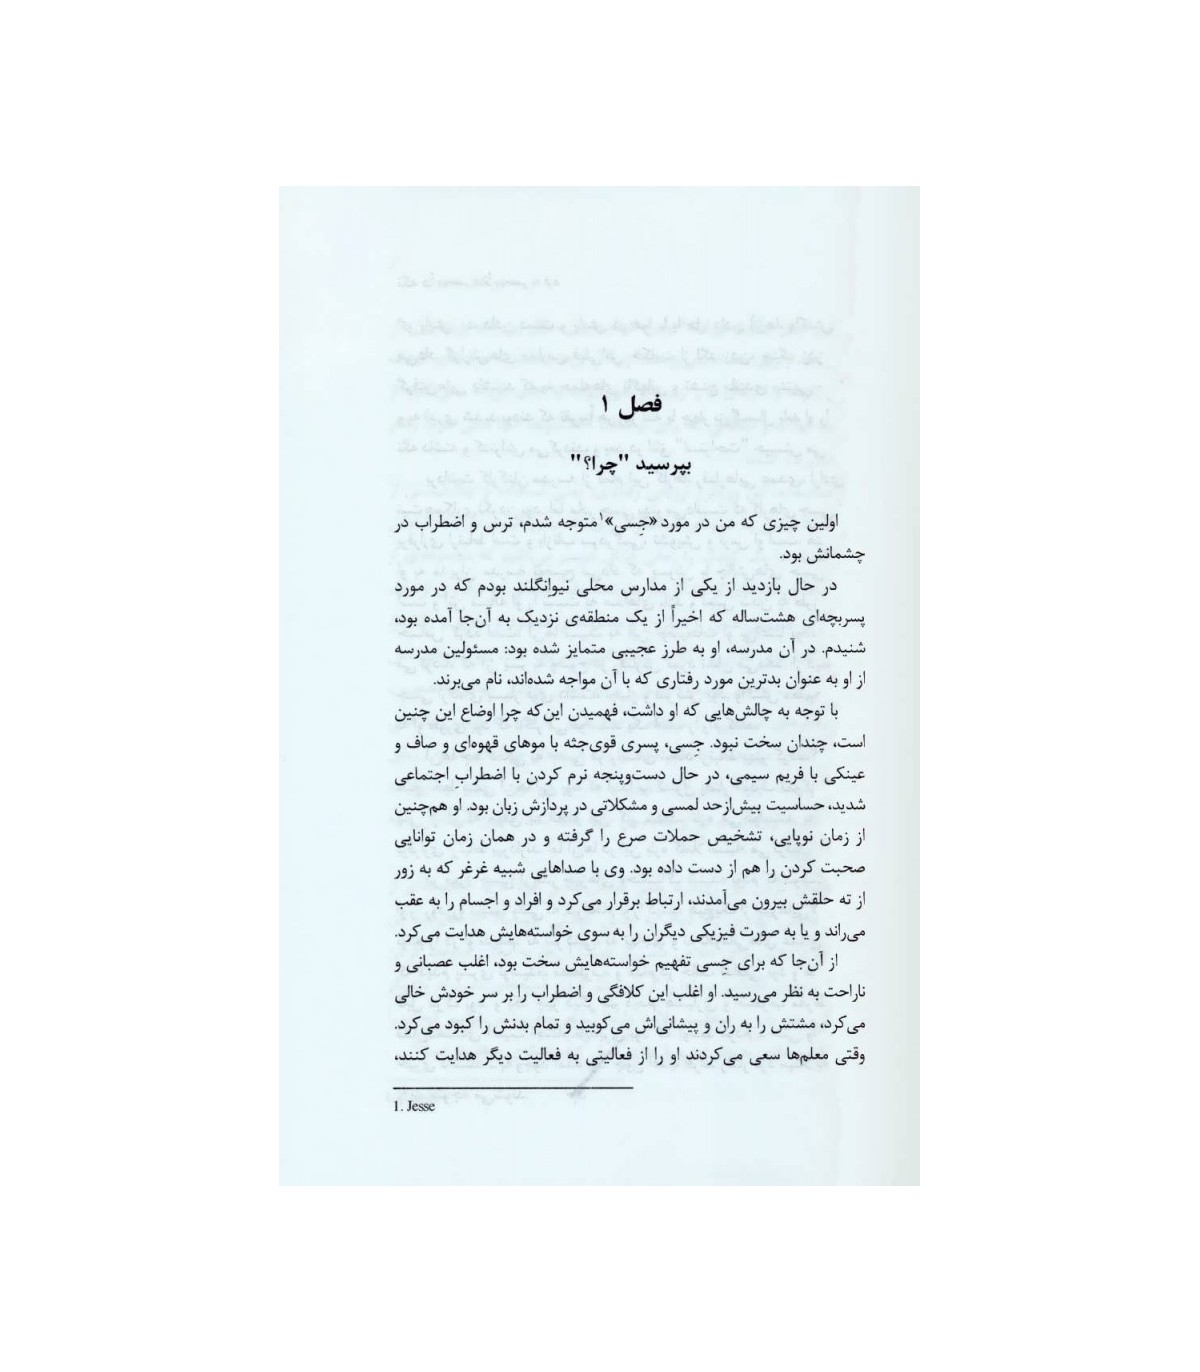 فصل ۱
بپرسید "چرا؟"
اولین چیزی که من در مورد «جِسی»۱ متوجه شدم، ترس و اضطراب در
چشمانش بود.
در حال بازدید از یکی از مدارس محلی نیواِنگلند بودم که در مورد
پسربچه‌ای هشت‌ساله که اخیراً از یک منطقه‌ی نزدیک به آن‌جا آمده بود،
شنیدم. در آن مدرسه، او به طرز عجیبی متمایز شده بود: مسئولین مدرسه
از او به عنوان بدترین مورد رفتاری که با آن مواجه شده‌اند، نام می‌برند.
با توجه به چالش‌هایی که او داشت، فهمیدن این‌که چرا اوضاع این چنین
است، چندان سخت نبود. جِسی، پسری قوی‌جثه با موهای قهوه‌ای و صاف و
عینکی با فریم سیمی، در حال دست‌وپنجه نرم کردن با اضطرابِ اجتماعی
شدید، حساسیت بیش‌ازحد لمسی و مشکلاتی در پردازش زبان بود. او هم‌چنین
از زمان نوپایی، تشخیص حملات صرع را گرفته و در همان زمان توانایی
صحبت کردن را هم از دست داده بود. وی با صداهایی شبیه غرغر که به زور
از ته حلقش بیرون می‌آمدند، ارتباط برقرار می‌کرد و افراد و اجسام را به عقب
می‌راند و یا به صورت فیزیکی دیگران را به سوی خواسته‌هایش هدایت می‌کرد.
از آن‌جا که برای جِسی تفهیم خواسته‌هایش سخت بود، اغلب عصبانی و
ناراحت به نظر می‌رسید. او اغلب این کلافگی و اضطراب را بر سر خودش خالی
می‌کرد، مشتش را به ران و پیشانی‌اش می‌کوبید و تمام بدنش را کبود می‌کرد.
وقتی معلم‌ها سعی می‌کردند او را از فعالیتی به فعالیت دیگر هدایت کنند،
1. Jesse